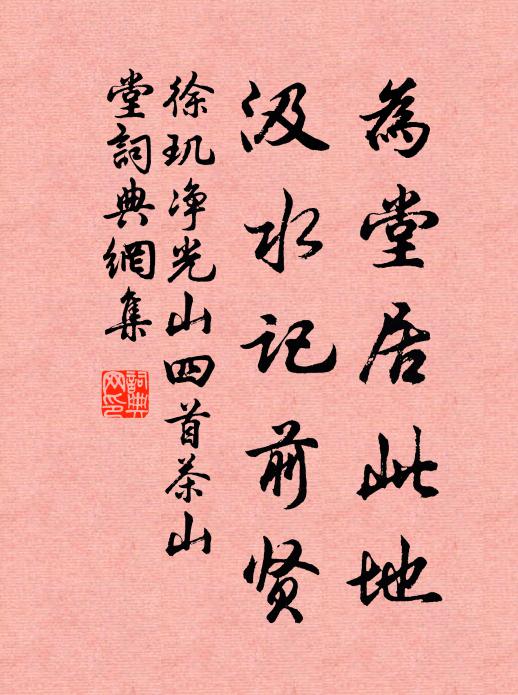 為堂居此地
汲水记前贤
徐玑净光山四首茶山
堂詞典網集
詞典网印